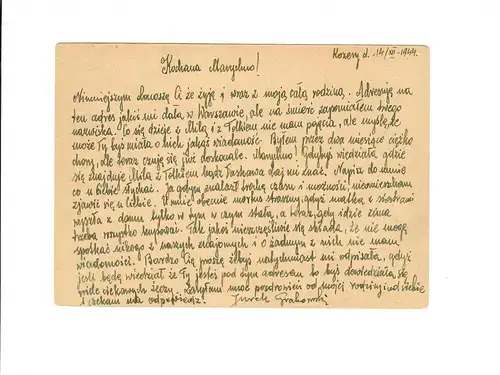 Kozery d. 14/XII-1944.
Kochana Marychno!
Niniejszym donoszę Ci że żyję i wraz z moją całą rodziną. Adresuję na
ten adres jakiś mi dała w Warszawie, ale na śmierć zapomniałem twego
nazwiska. Co się dzieje z Milą i z Tolkiem nie mam pojęcia, ale myślę, że
może Ty byś miała o nich jakąś wiadomość. Byłem przez dwa miesiące ciężko
chory, ale teraz czuję się już doskonale. Marychno! Gdybyś wiedziała gdzie
się znajduje Mila z Tolkiem bądź łaskawa daj mi znać. Napisz do mnie
co u Ciebie słychać. Ja gdym znalazł trochę czasu i możności, nieomieszkam
zjawić się u Ciebie. U mnie obecnie morkus straszny, gdyż matka z siostrami
wyszła z domu tylko w tym w czym stała, a teraz, gdy idzie zima
trzeba wszystko kupować. Tak jakoś nieszczęśliwie się składa, że nie mogę
spotkać nikogo z naszych znajomych i o żadnym z nich nie mam
wiadomości. Bardzo Cię proszę żebyś natychmiast mi odpisała, gdyż
jeśli będę wiedział że Ty jesteś pod tym adresem to byś dowiedziała się
wiele ciekawych rzeczy. Zasyłam moc pozdrowień od mojej rodziny i od siebie
i czekam na odpowiedź! Jurek Grabowski